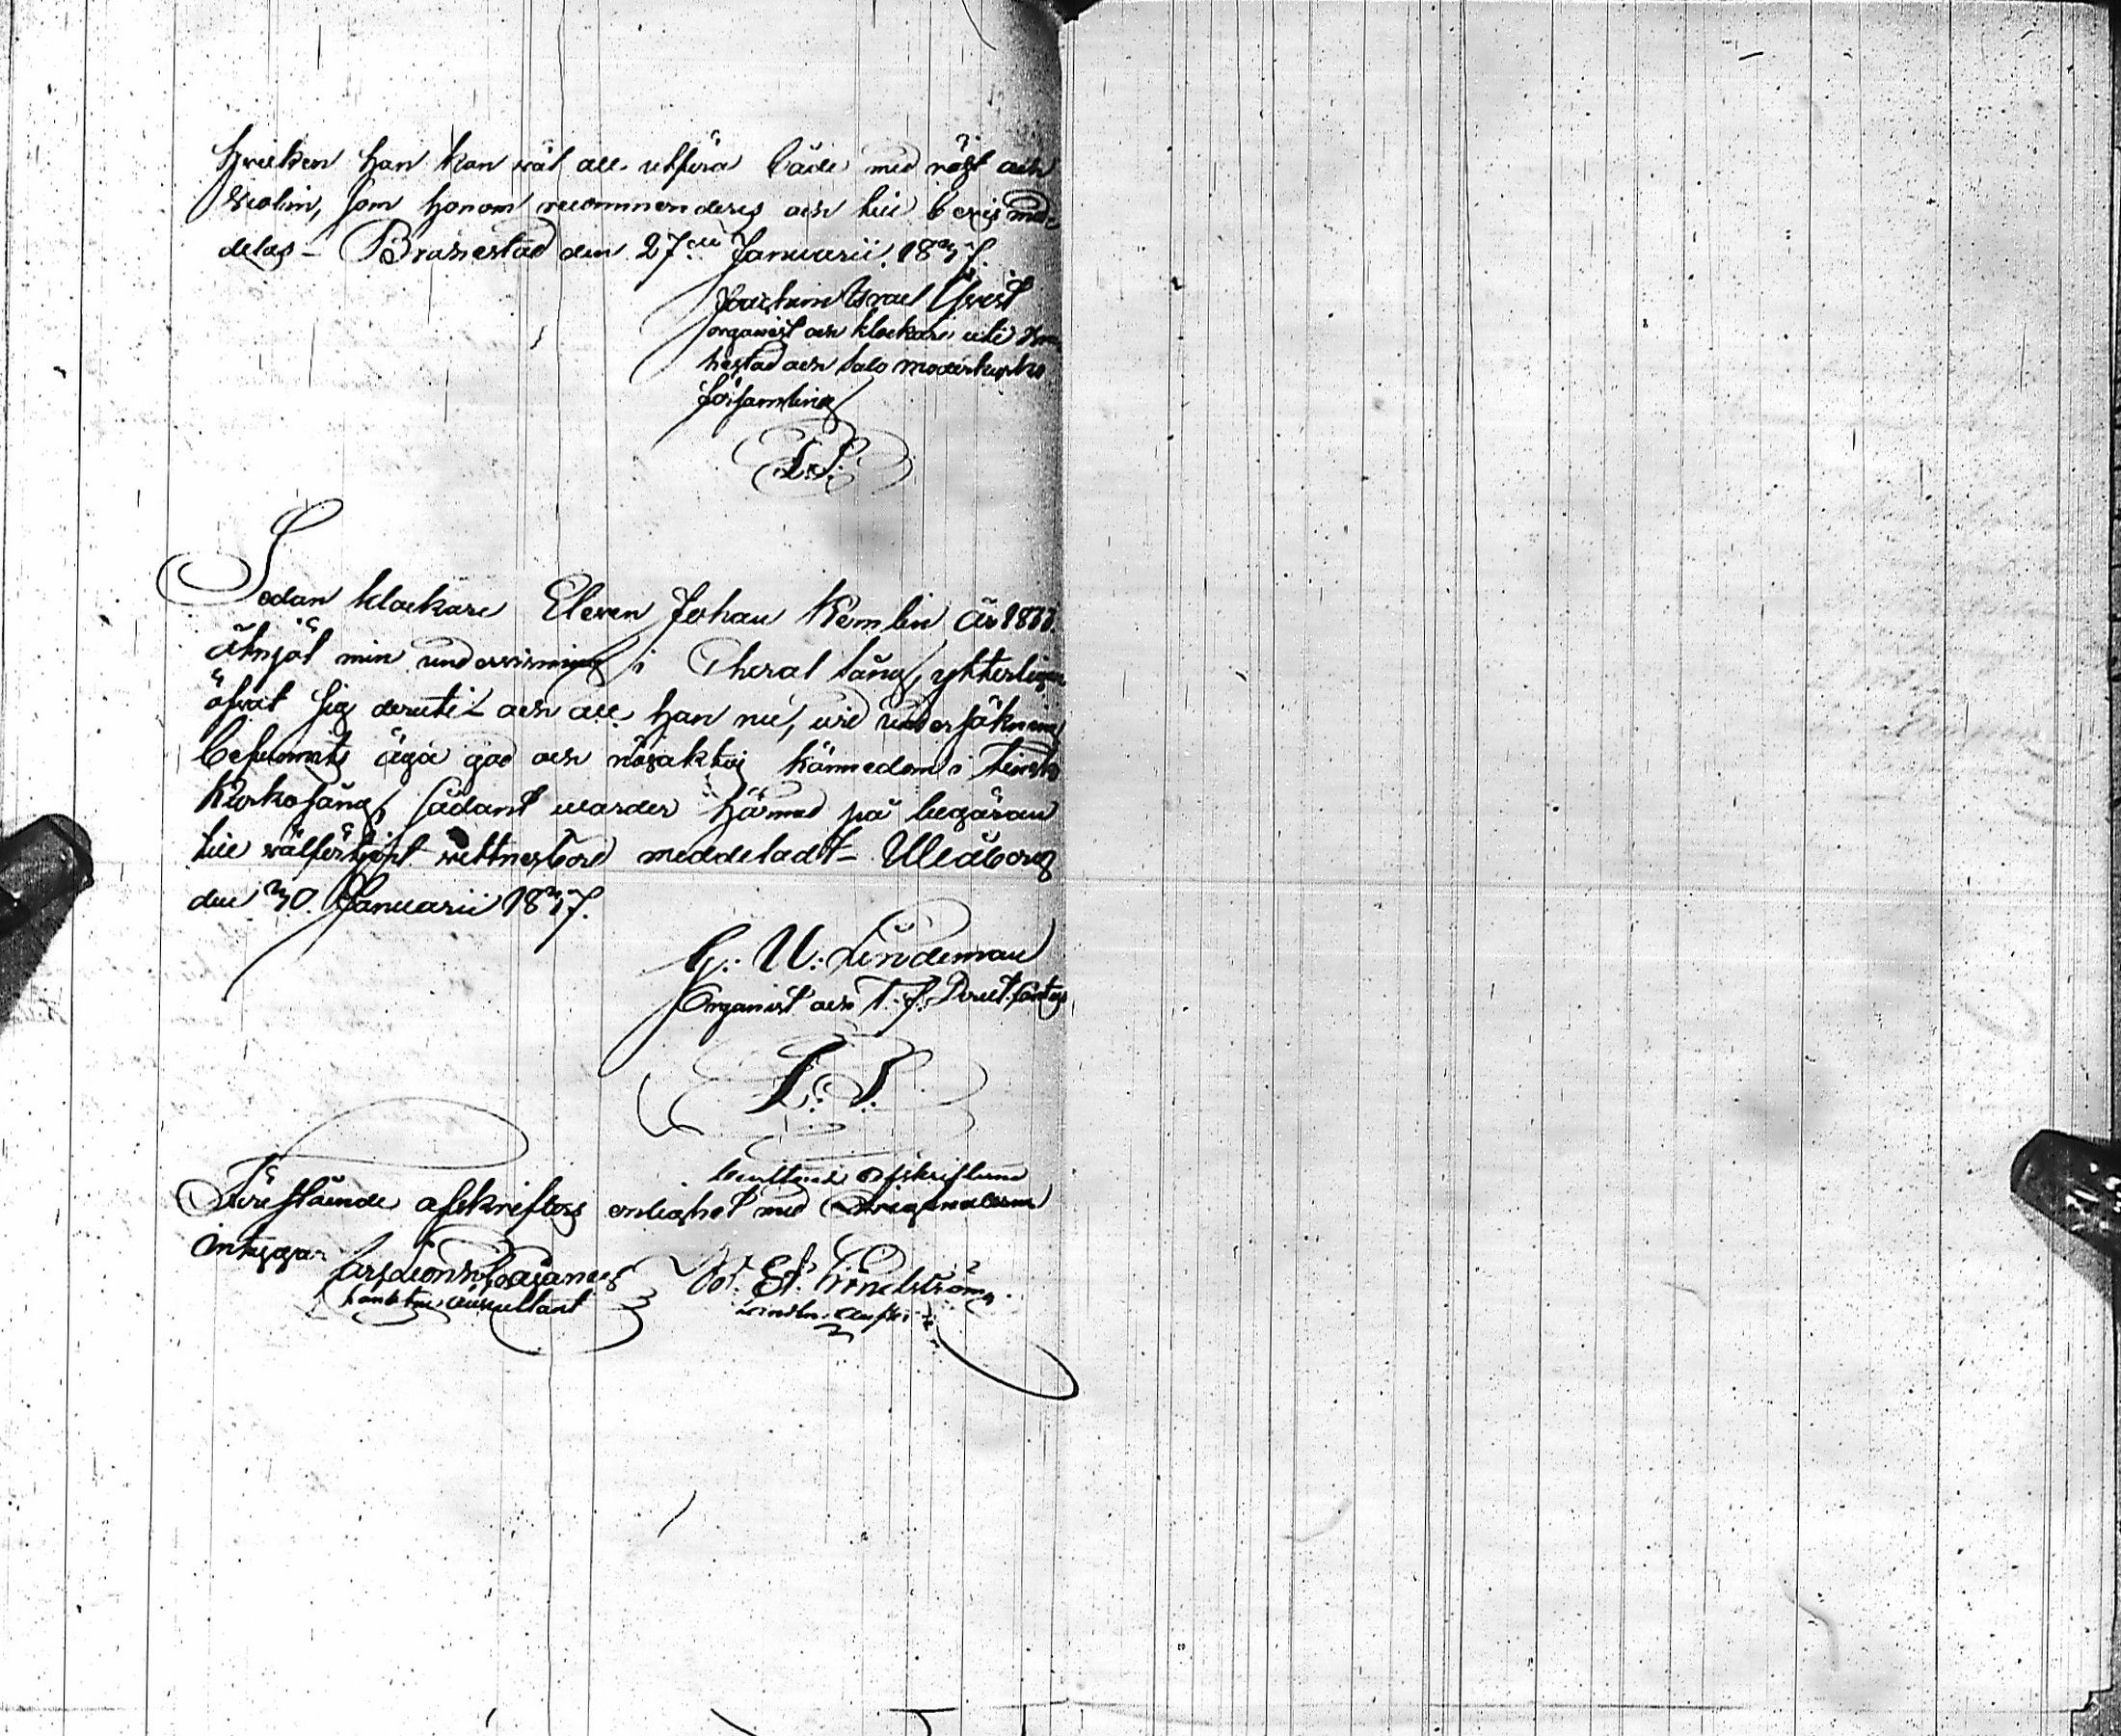 hvilken han kan wäl all utföra både med röst och
Violin, som honom recommenderes och till bevis med-
delas - Brahestad den 27:de Januarii 1837.
Joachim Israel Qvist
organist och klockare uti Bra-
hestad och Salo moderkyrko
församling
L.S.
Sedan klockare Eleven Johan Kemlin år 1833.
åtnjöt min underwisning i Choral sång, ytterligare
öfvat sig deruti och all han nu, wid undersökning
befunnits äga god och nogaktig kännedom i Finsk
Kyrkosång, sådant warder härmed på begäran
till wälförtjent wittnesbörd meddeladt - Uleåborg
den 30. Januarii 1837.
G: U: Lindeman
Organist och T. f. Direct. Cantus
L. S.
afskriftens
Föreståënde afskrifters enlighet med Originalerne
intyga:
Auscultant